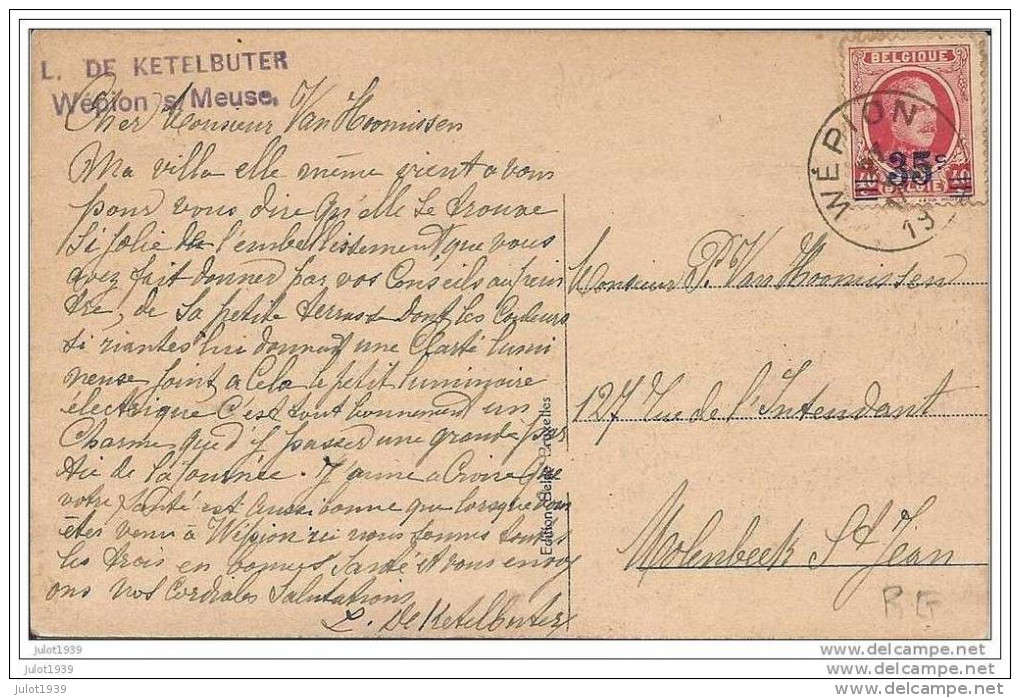 L. DE KETELBUTER
Wépion s/ Meuse.
Cher Monsieur Van Hoomissen
Ma villa elle même vient a vous
pour vous dire qu'elle se trouve
si jolie de l'embellissement que vous
avez fait donner par vos Conseils au pein
tre, de sa petite terrasse dont les Couleurs
si riantes lui donnent une Clarté lumi
neuse joint a Cela le petit luminaire
électrique C'est tout bonnement un
Charme que d'y passer une grande par
tie de la Journée. J'aime a Croire que
votre Santé est aussi bonne que lorsque vous
êtes venu à Wépion ici nous sommes tous
les trois en bonnes Santé et vous envoy
ons nos Cordiales Salutations
L. DeKetelbuter
Edition Belge Bruxelles
BELGIQUE
35c
40 40
BELGIE
WÉPION
19
Monsieur P. Van Hoomissen
127 rue de l'Intendant
Molenbeek St Jean
RG
julot1939
julot1939
julot1939
www.delcampe.net
www.delcampe.net
www.delcampe.net